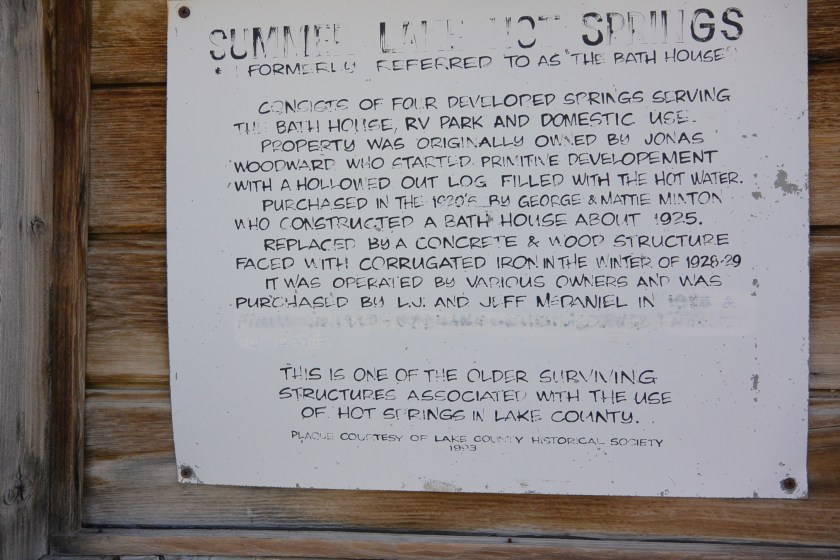 SUMMER LAKE HOT SPRINGS
* FORMERLY REFERRED TO AS "THE BATH HOUSE"
CONSISTS OF FOUR DEVELOPED SPRINGS SERVING
THE BATH HOUSE, RV PARK AND DOMESTIC USE.
PROPERTY WAS ORIGINALLY OWNED BY JONAS
WOODWARD WHO STARTED PRIMITIVE DEVELOPEMENT
WITH A HOLLOWED OUT LOG FILLED WITH THE HOT WATER.
PURCHASED IN THE 1920'S BY GEORGE & MATTIE MINTON
WHO CONSTRUCTED A BATH HOUSE ABOUT 1925.
REPLACED BY A CONCRETE & WOOD STRUCTURE
FACED WITH CORRUGATED IRON IN THE WINTER OF 1928-29
IT WAS OPERATED BY VARIOUS OWNERS AND WAS
PURCHASED BY L.J. AND JEFF McDANIEL IN
THIS IS ONE OF THE OLDER SURVIVING
STRUCTURES ASSOCIATED WITH THE USE
OF HOT SPRINGS IN LAKE COUNTY.
PLAQUE COURTESY OF LAKE COUNTY HISTORICAL SOCIETY
1993